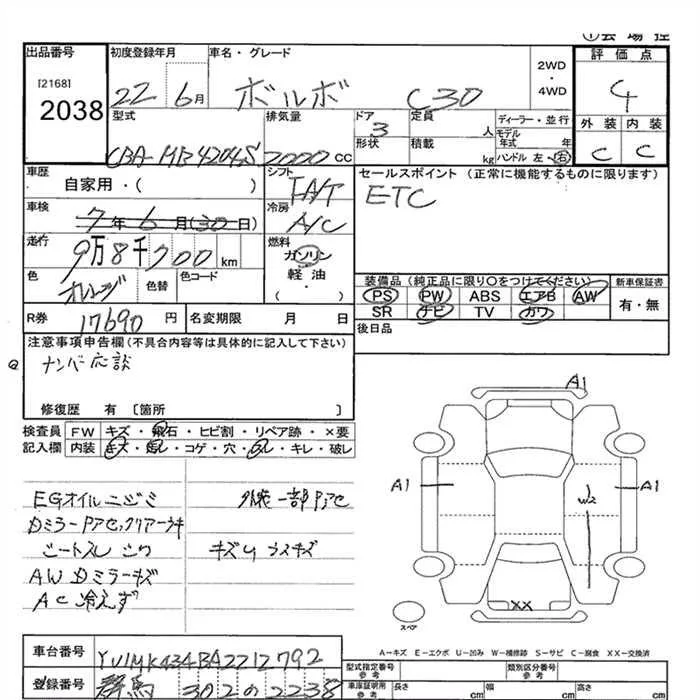 ①会場控
出品番号 初度登録年月 車名・グレード 2WD・4WD 評価点
[2168]
2038 22 6月 ボルボ C30 4
型式 排気量 ドア 定員 人 ディーラー・並行 外装 内装
CBA-MB4204S 2000 CC 3 形状 積載 kg モデル年式 年 ハンドル 左・右 C C
車歴 自家用・( ) シフト セールスポイント (正常に機能するものに限ります)
車検 7年6月(30日) 冷房 A/C ETC
走行 9万8千700km 燃料 ガソリン 軽油・( )
色 オレンジ 色替 色コード 装備品(純正品に限り○をつけてください) 新車保証書
PS PW ABS エアB AW 有・無
SR ナビ TV カワ
R券 17690円 名変期限 月 日 後日品
注意事項申告欄(不具合内容等は具体的に記入して下さい)
ナンバ応談
修復歴 有 〔箇所 〕
検査員 FW キズ・飛石・ヒビ割・リペア跡・×要
記入欄 内装 キズ・汚レ・コゲ・穴・スレ・キレ・破レ
EGオイルニジミ 外装一部Pアセ
DミラーPアセ、クリアーハキ
シートスレ シワ キズU ウスキズ
AW Dミラーキズ
AC冷えず
A1
A1 W2 A1
XX
スペア
A-キズ E-エクボ U-凹み W-補修跡 S-サビ C-腐食 XX-交換済
車台番号 YV1MK434BA2212792 型式指定番号 参考 類別区分番号 参考
登録番号 群馬 302の2238 車庫証明用 参考 長さ cm 幅 cm 高さ cm